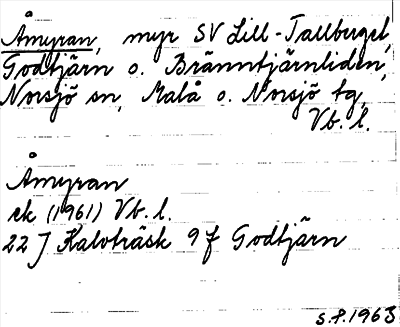 Åmyran, myr SV Lill-Tallberget,
Godtjärn o. Bränntjärnliden,
Norsjö sn, Malå o. Norsjö tg,
Vb. l.
Åmyran
ek (1961) Vb. l.
22 J Kalvträsk 9 f Godtjärn
S.P. 1963